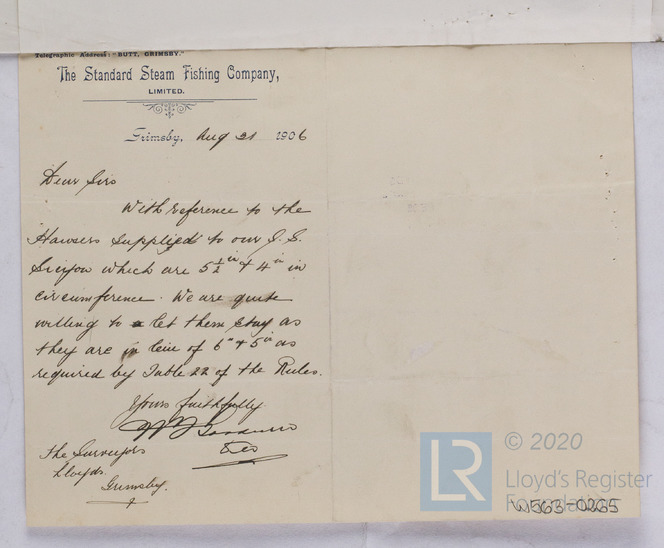 Telegraphic Address: "BUTT, GRIMSBY."
The Standard Steam Fishing Company,
LIMITED.
Grimsby, Aug 21 1906
Dear Sirs
With reference to the
Hawsers supplied to our S.S.
Sicyon which are 5 1/2 in & 4 in in
circumference. We are quite
willing to let them stay as
they are in leiu of 6" & 5 in as
required by Table 22 of the Rules.
Yours faithfully
The Surveyors
Lloyds.
Grimsby.
LR © 2020
Lloyd's Register
Foundation
W563-0265